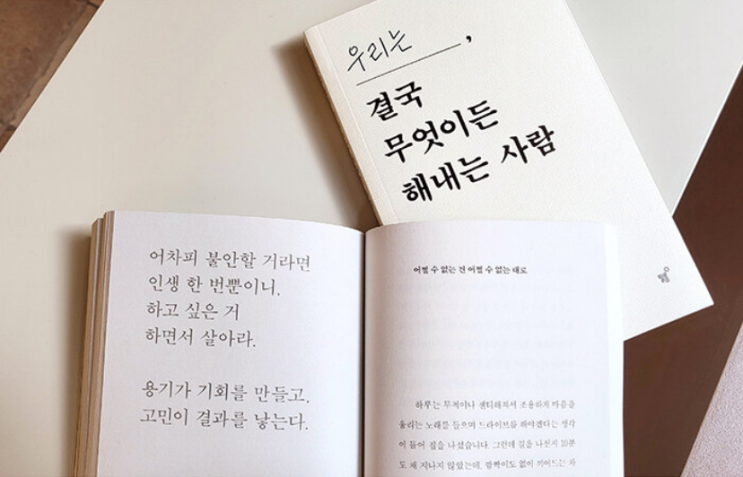 우리는 ,
결국
무엇이든
해내는 사람
어차피 불안할 거라면
인생 한 번뿐이니,
하고 싶은 거
하면서 살아라.
용기가 기회를 만들고,
고민이 결과를 낳는다.
어쩔 수 없는 건 어쩔 수 없는 대로
하루는 무척이나 센티해져서 조용하게 마음을
울리는 노래를 들으며 드라이브를 해야겠다는 생각
이 들어 길을 나섰습니다. 그런데 길을 나선지 10분
도 채 지나지 않았는데, 깜빡이도 없이 끼어드는 차